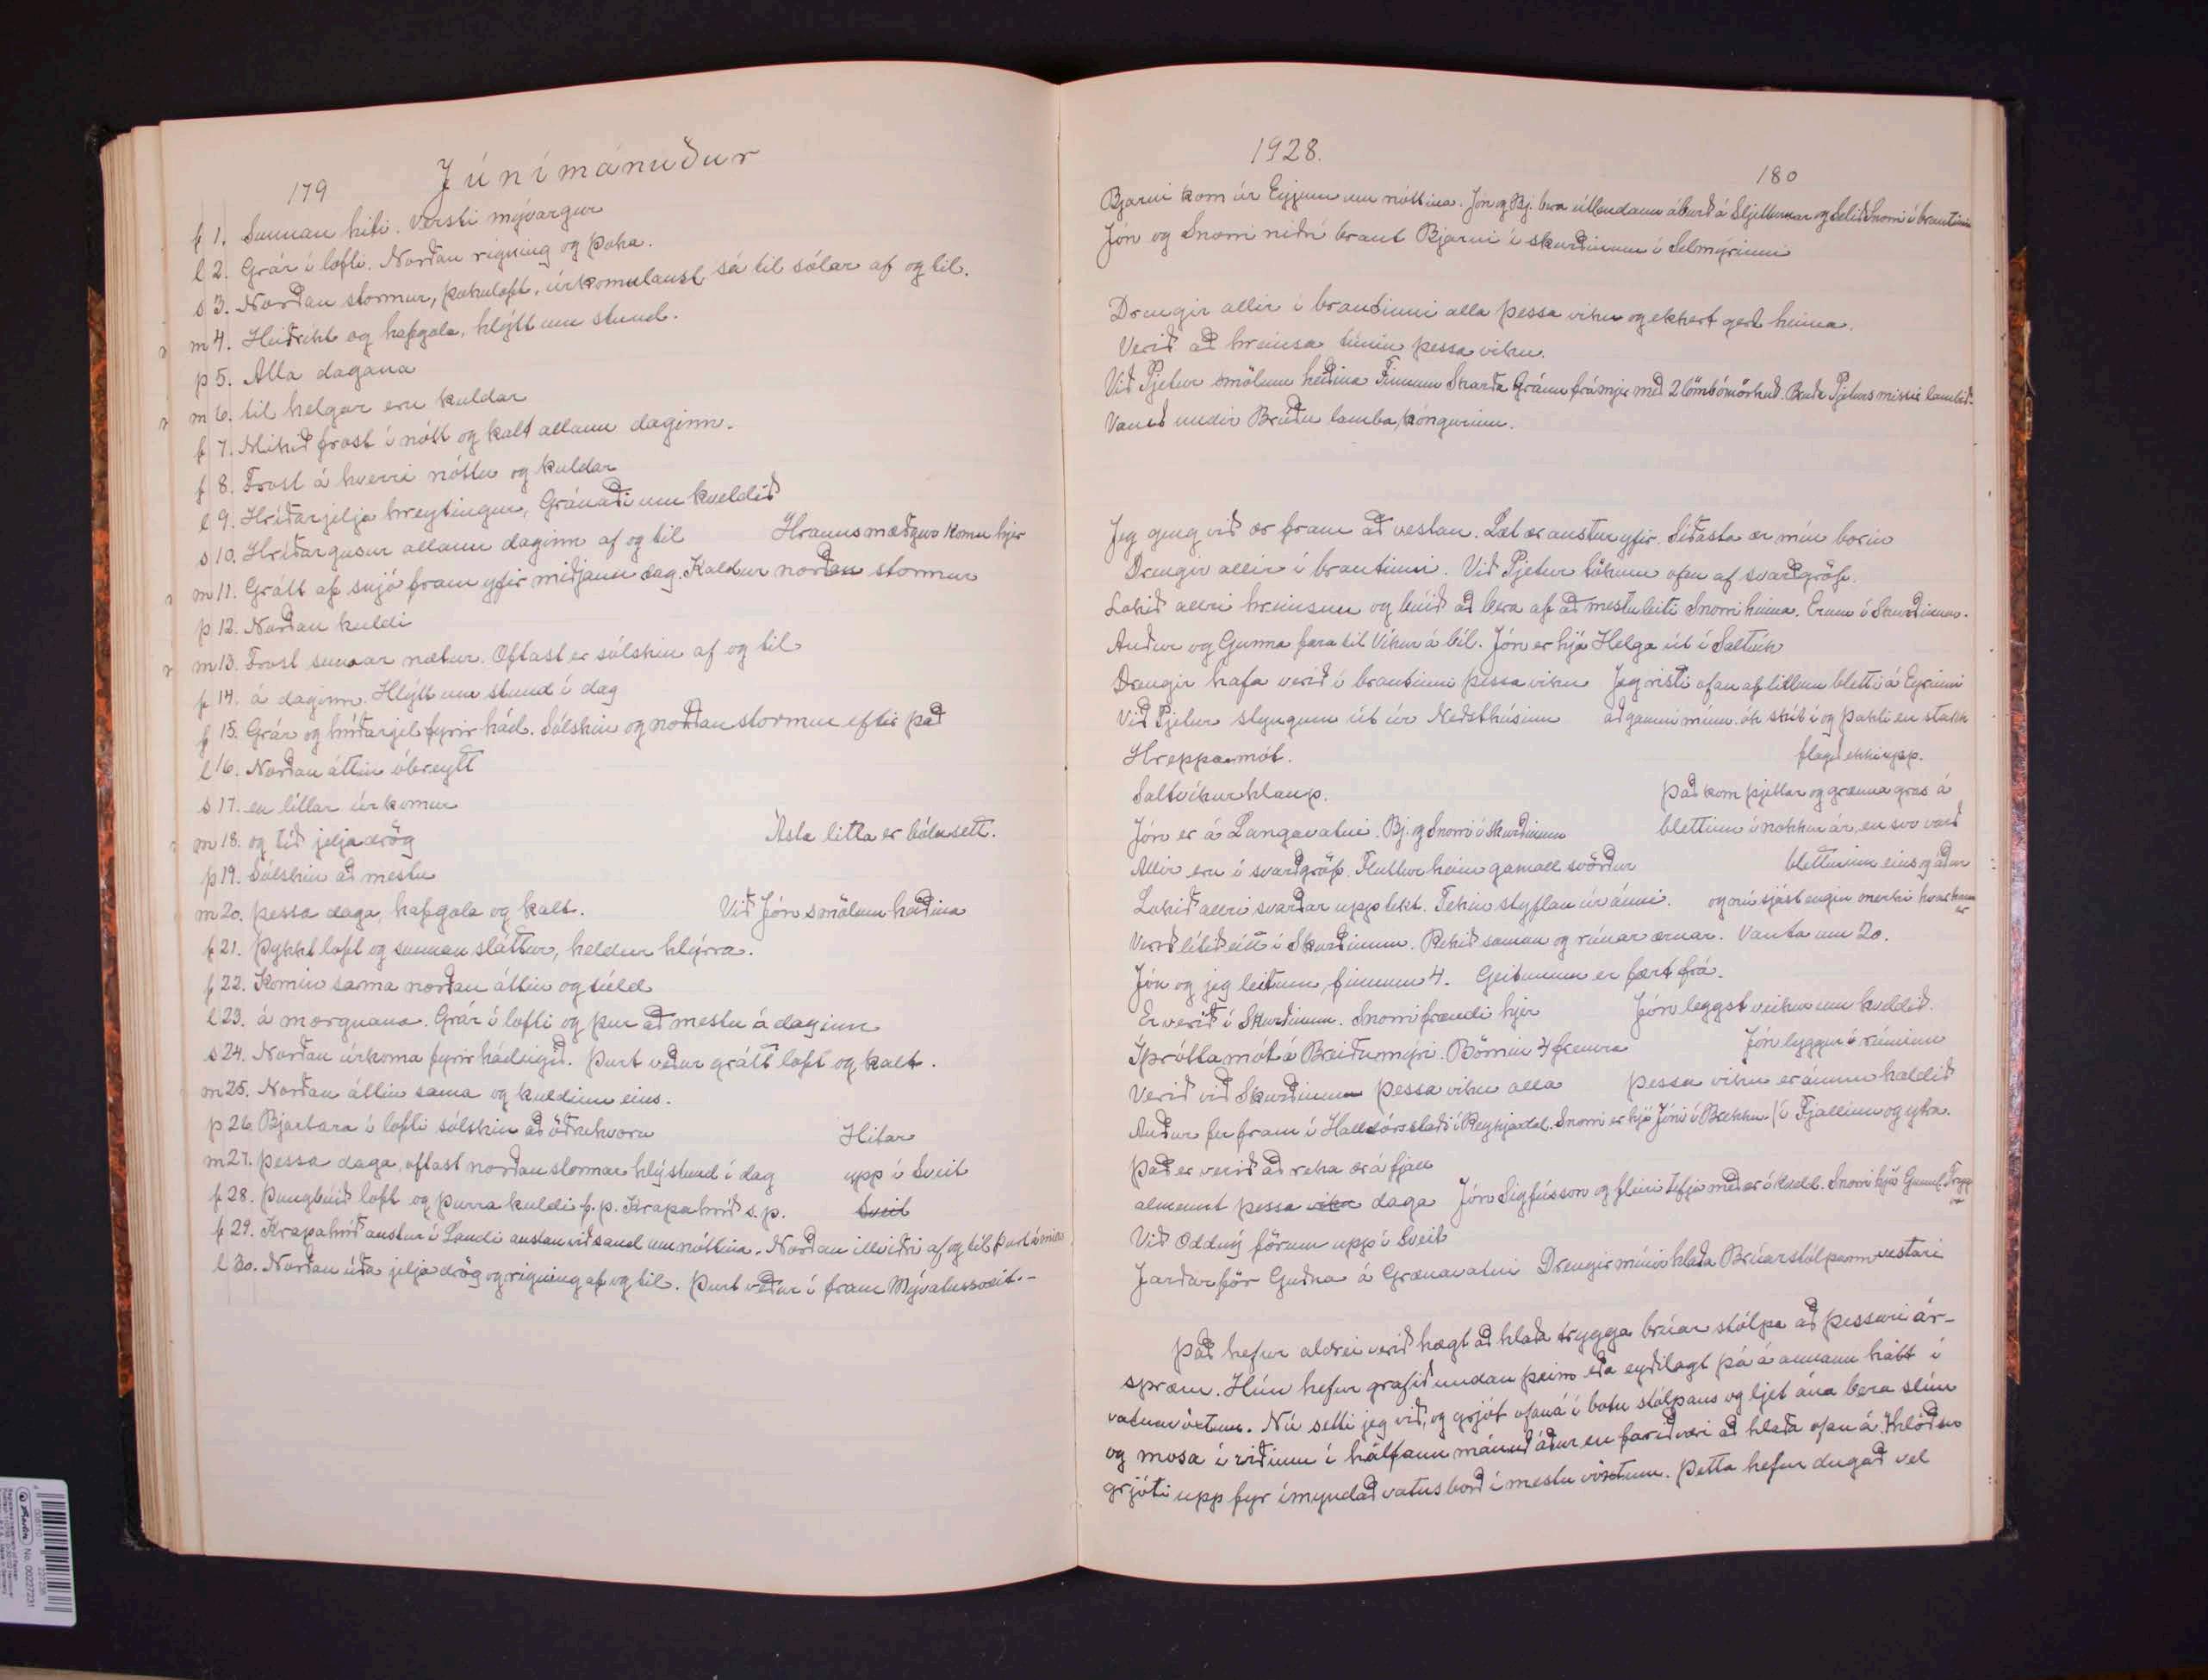 179
Júnímánuður
f 1. Sunnan hiti. Versti mývargur
l 2. Grár í lofti. Norðan rigning og þoka.
s 3. Norðan stormur, þokuloft, úrkomulaust sá til sólar af og til.
m 4. Heiðríkt og hafgola, hlýtt um stund.
þ 5. Alla dagana
m 6. til helgar eru kuldar
f 7. Mikið frost í nótt og kalt allann daginn.
f 8. Frost á hverri nóttu og kuldar
l 9. Hríðarjelja hreytingur, Gránaði um kveldið
s 10. Hríðargusur allann daginn af og til Hraunsmæðgur komu hjer
m 11. Grátt af snjó fram yfir miðjann dag. Kaldur norðan stormur
þ 12. Norðan kuldi
m 13. Frost sumar nætur. Oftast er sólskin af og til
f 14. á daginn. Hlýtt um stund í dag
f 15. Grár og hríðarjel fyrir hád. Sólskin og norðan stormur eftir það
l 16. Norðan áttin óbreytt
s 17. en litlar úrkomur
m 18. og tíð jeljadrög Ásta litla er bólusett.
þ 19. Sólskin að mestu
m 20. þessa daga, hafgola og kalt. Við Jón smölum heiðina
f 21. Þykkt loft og sunnan sláttur, heldur hlýrra.
f 22. Komin sama norðan áttin og súld
l 23. á morgnana. Grár í lofti og þur að mestu á daginn
s 24. Norðan úrkoma fyrir hádegið. Þurt veður grátt loft og kalt.
m 25. Norðan áttin sama og kuldinn eins.
þ 26. Bjartara í lofti sólskin að öðruhvoru Hitar
m 27. þessa daga, oftast norðan stormar hlý stund í dag upp í Sveit
f 28. Þungbúið loft og þurra kuldi f.p. Krapahríð s.p. Sveit
f 29. Krapahríð austur í Landi austan við sand um nóttina. Norðan illviðri af og til þurt á milli
l 30. Norðan úða jeljadrög og rigning af og til. Þurt veður í fram Mývatnssveit.-
1928.
180
Bjarni kom úr Eyjum um nóttina. Jón og Bj. bera útlendann áburð á Sljetturnar og Selið Snorri í brautinni
Jón og Snorri niðrí braut Bjarni í skurðinum í Selmýrinni
Drengir allir í brautinni alla þessa viku og ekkert gert heima.
Verið að hreinsa túnin þessa viku.
Við Pjetur smölum heiðina Finnum Skarða Gránu frá mjer með 2 lömb ómörkuð. Bauða Pjeturs missir lambið.
Vanið undir Brúðu lamba kóngurinn.
Jeg geng við ær fram að vestan. Læt ær austur yfir. Síðasta ær mín borin
Drengir allir í brautinni. Við Pjetur tökum ofan af svarðgröf.
Lokið allri hreinsun og búið að bera af að mestu leiti Snorri heima. Erum í Skurðinum.
Auður og Gunna fara til Víkur á bíl. Jón er hjá Helga út í Saltvík
Drengir hafa verið í brautinni þessa viku Jeg risti ofan af litlum bletti á Eyrinni
Við Pjetur styngum út úr Neðsthúsinu að gamni mínu. ók skít í og þakti en stakk
Hreppamót. flagið ekki upp.
Saltvíkurhlaup. Það kom þjettar og grænna gras á
Jón er á Langavatni. Bj. og Snorri í Skurðinum blettinn í nokkur ár, en svo varð
Allir eru í svarðgröf. Fluttur heim gamall svörður bletturinn eins og áður
Lokið allri svarðar upptekt. Tekin styflan úr ánni. og nú sjást engin merki hvar hann er
Verið lítið eitt í Skurðinum. Rekið saman og rúnar ærnar. Vanta um 20.
Jón og jeg leitum, finnum 4. Geitunum er fært frá.
Er verið í Skurðinum. Snorri frændi hjer Jón leggst veikur um kveldið.
Íþróttamót á Breiðumýri. Börnin 4 fremra Jón lyggur í rúminu
Verið við Skurðinum þessa viku alla þessa viku er ánum haldið
Auður fer fram í Halldórsstaði í Reykjadal. Snorri er hjá Jóni í Brekku. / í Fjallinu og ytra.
það er verið að reka ær á fjall
almennt þessa viku daga Jón Sigfússon og fleiri tefja með ær í kveld. Snorri hjá Gunnl. Trygg
va
Við Oddný förum upp í Sveit
Jarðarför Guðna á Grænavatni Drengir mínir hlaða Brúarstólpann vestari
Það hefur aldrei verið hægt að hlaða trygga brúar stólpa að þessari ár-
spræn. Hún hefur grafið undan þeim eða eyðilagt þá á annann hátt í
vatnavöxtum. Nú setti jeg við, og grjót ofaná í botn stólpans og ljet ána bera slím
og mosa í viðinn í hálfann mánuð áður en farið væri að hlaða ofan á. Hlóðu
grjóti upp fyr ímyndað vatnsborð í mestu vöxtum. Þetta hefur dugað vel